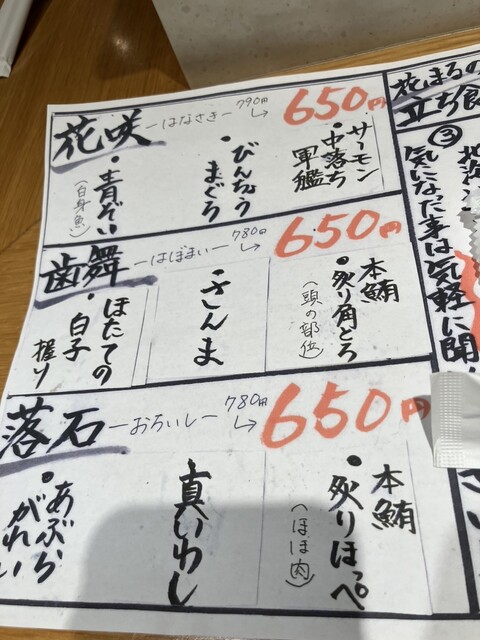 花咲 ーはなさきー 790円 650円
サーモン
・中落ち
軍艦
・びんちょう
まぐろ
・青ぞい
(白身魚)
歯舞 ーはぼまいー 780円 650円
本鮪
・炙り角とろ
(頭の部位)
・さんま
ほたての
・白子
握り
落石 ーおちいしー 780円 650円
本鮪
・炙りほっぺ
(ほほ肉)
・真いわし
・あぶら
がれい
花まるの
立ち食
③
気になった事は気軽に聞